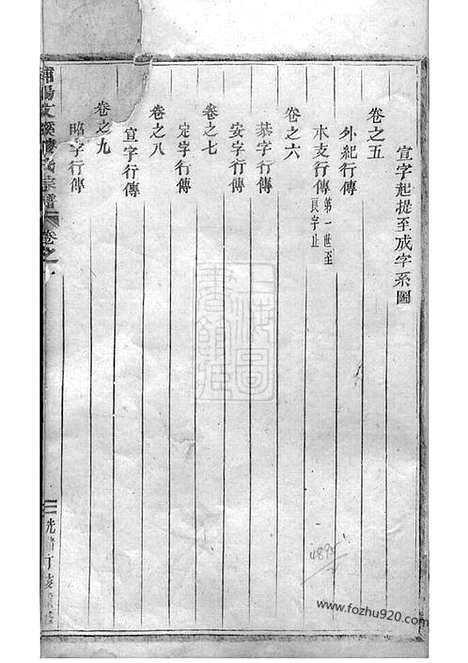 宣字起提至成字系圖
卷之五
外紀行傳
本支行傳 第一世至
良字止
卷之六
恭字行傳
安字行傳
卷之七
定字行傳
卷之八
宣字行傳
卷之九
昭字行傳
宗譜
卷之
上海圖
書館藏
489-1
www.fozhu920.com